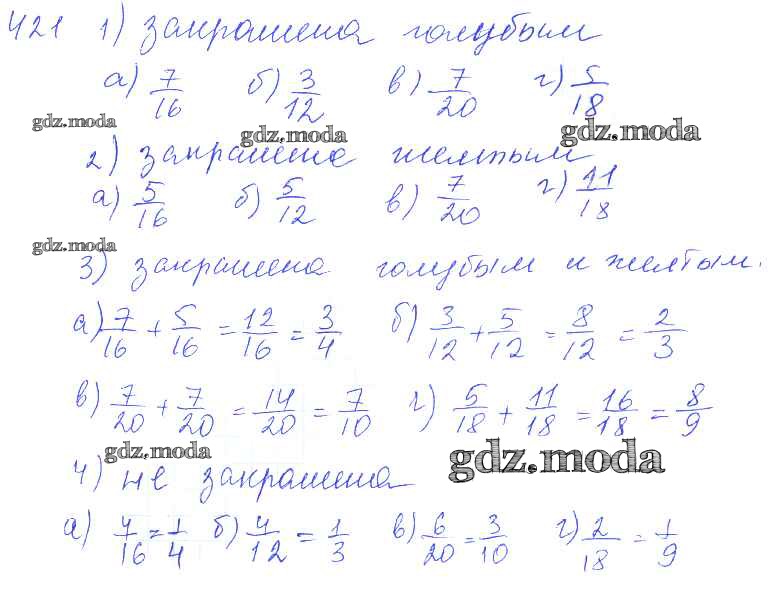 421 1) закрашена голубым
а) 7/16 б) 3/12 в) 7/20 г) 5/18
gdz.moda gdz.moda gdz.moda
2) закрашена желтым
а) 5/16 б) 5/12 в) 7/20 г) 11/18
gdz.moda
3) закрашена голубым и желтым.
а) 7/16 + 5/16 = 12/16 = 3/4 б) 3/12 + 5/12 = 8/12 = 2/3
в) 7/20 + 7/20 = 14/20 = 7/10 г) 5/18 + 11/18 = 16/18 = 8/9
gdz.moda gdz.moda
4) не закрашена
а) 4/16 = 1/4 б) 4/12 = 1/3 в) 6/20 = 3/10 г) 2/18 = 1/9